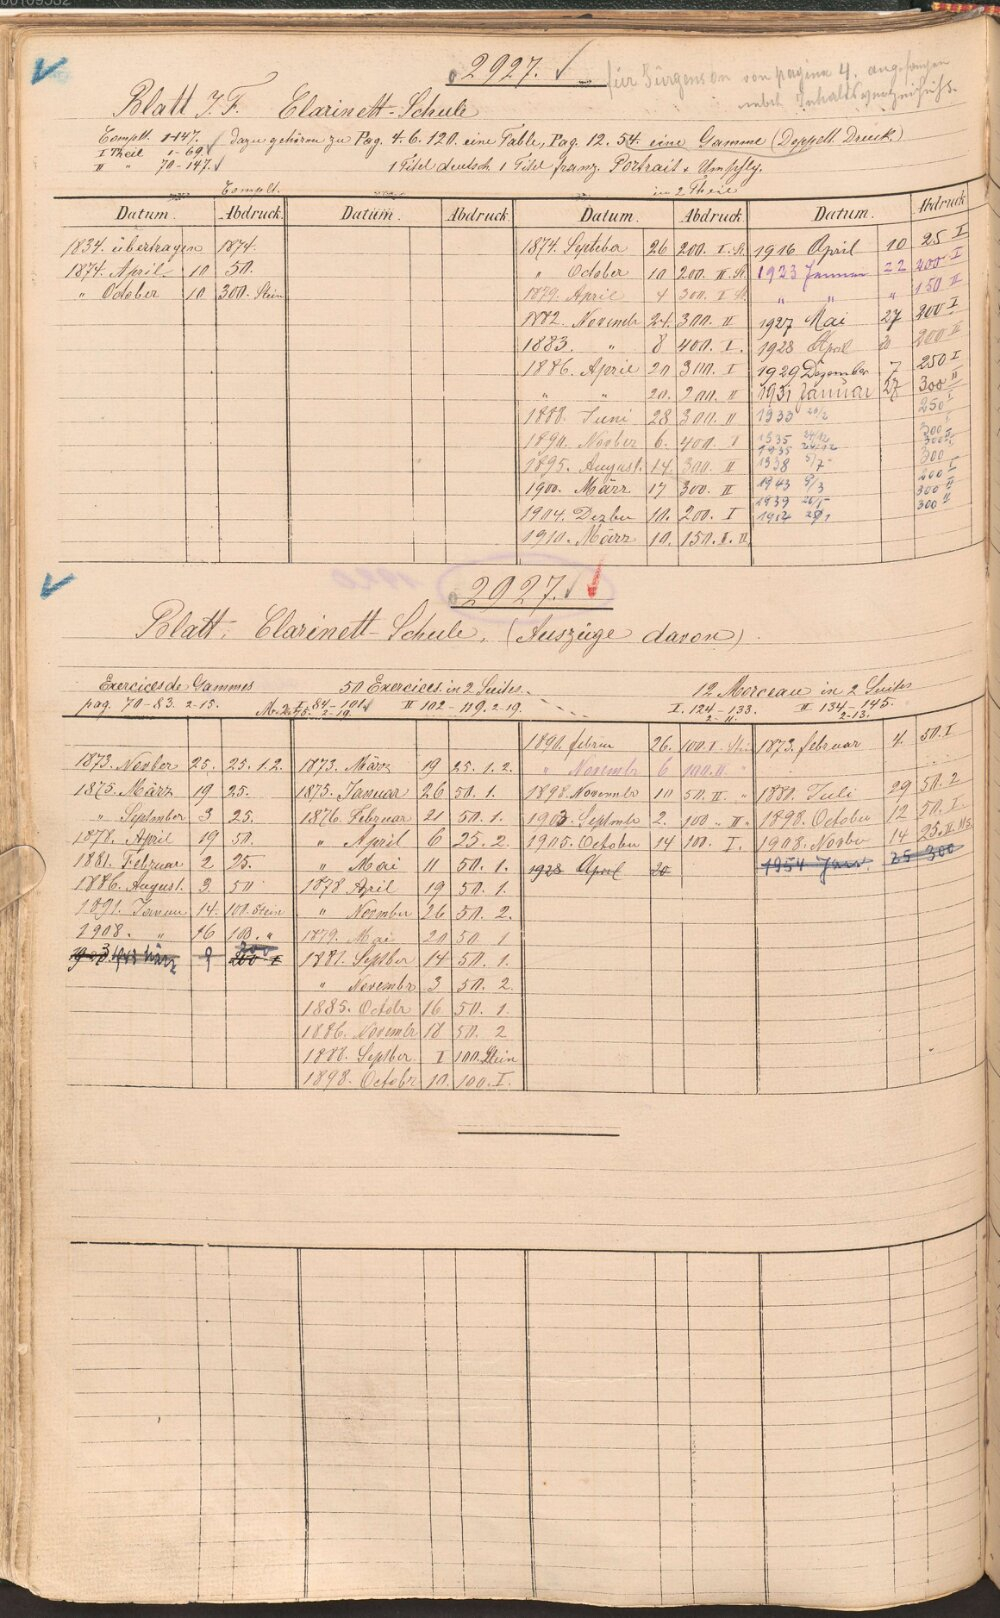 2927.
für Jürgenson von pagina 4. angefangen
nebst Inhaltsverzeichniß.
Blatt J. F. Clarinett-Schule
Complt. 1-147. dazu gehören zu Pag. 4. 6. 120. eine Table, Pag. 12. 54. eine Gamme (Doppelt Druck)
I Theil 1-69.
II " 70-147. 1 Titel deutsch 1 Titel franz. Portrait + Umschlg.
Complt. in 2 Theile
Datum. Abdruck. Datum. Abdruck. Datum. Abdruck Datum. Abdruck
1834. übertragen 1874.
1874. April 10 50.
" October 10 300. Stein
1874. Septeber 26 200. I. St.
" October 10 200. II. St.
1879. April 4 300. I St.
1882. Novembr 24. 300. II
1883. " 8 400. I.
1886. April 20 300. I
" " 20. 200. II
1888. Juni 28 300. II
1890. Novber 6. 400. I
1895. August. 14 300. II
1900. März 17 300. II
1904. Dezber 10. 200. I
1910. März 10. 150. I. II.
1916 April 10 25 I
1923 Januar 22 200 I
" " " 150 II
1927 Mai 27 200 I
1928 April 20 200 II
1929 Dezember 7 250 I
1931 Januar 27 300 II
1933 250 I
1935 300
1935 300
1938 5/7 300
1943 9/3 200 I
1939 300 II
1952 300 II
2927.
Blatt. Clarinett-Schule. (Auszüge davon).
Exercices de Gammes 50 Exercices in 2 Suites. 12 Morceau in 2 Suites
pag. 70-83. 2-15. I 84-101 II 102-119. 2-19. I. 124-133. II 134-145.
2-19. 2-11. 2-13.
1873. Novber 25. 25. 1. 2.
1875. März 19 25.
" September 3 25.
1878. April 19 50.
1881. Februar 2 25.
1886. August. 3 50
1891. Januar 14. 100. Stein
1908. " 16 100. "
1943 März 9 200
1873. März 19 25. 1. 2.
1875. Januar 26 50. 1.
1876. Februar 21 50. 1.
" April 6 25. 2.
" Mai 11 50. 1.
1878 April 19 50. 1.
" November 26 50. 2.
1879. Mai 20 50 1
1881. Septber 14 50. 1.
" Novembr 3 50. 2.
1885. Octobr 16 50. 1.
1886. Novembr 18 50. 2
1888. Septber 1 100. Stein
1898. Octobr 10. 100. I.
1890. febrar 26. 100. I. Stein
" Novembr 6 100. II. "
1898. Novembr 10 50. II. "
1903 Septembr 2. 100 " II "
1905. October 14 100. I.
1928 April 20
1873. februar 4. 50. I
1880. Juli 29 50. 2
1898. October 12 50. I.
1908. Novber 14 25. II.
1954 Janr. 25 300